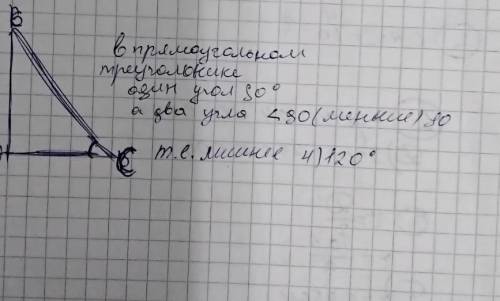 B
в прямоугольном
треугольнике
один угол 90°
а два угла < 90 (меньше) 90
C т.е. лишнее 4) 120°